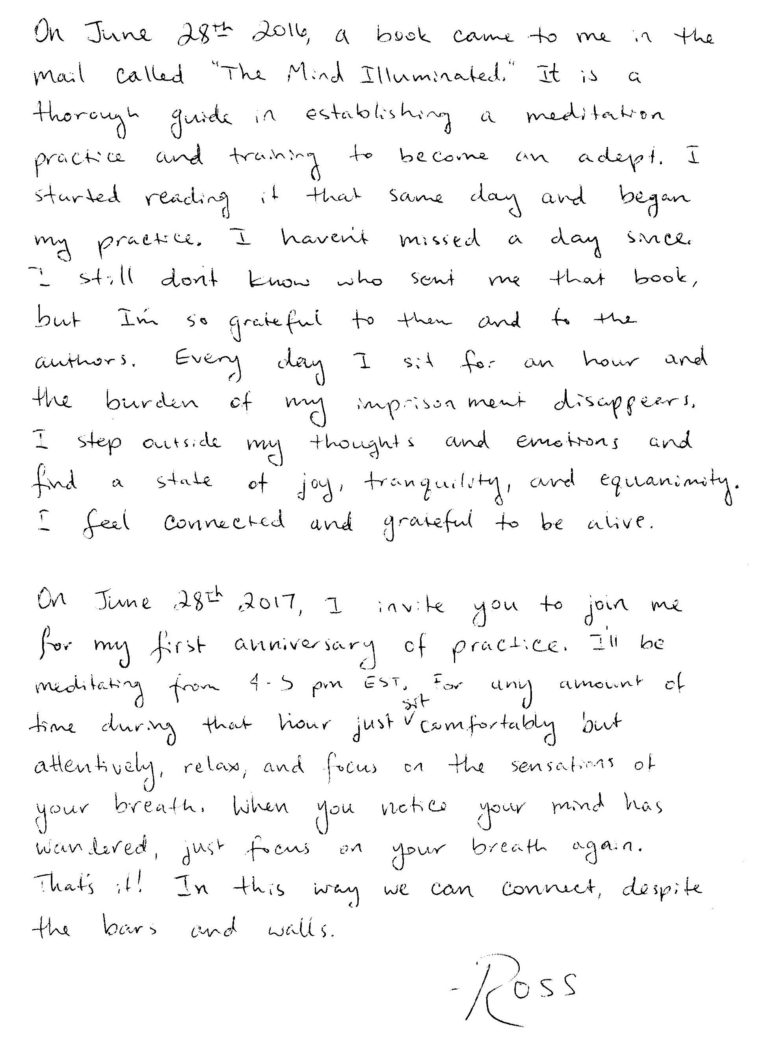 On June 28th 2016, a book came to me in the
mail called "The Mind Illuminated." It is a
thorough guide in establishing a meditation
practice and training to become an adept. I
started reading it that same day and began
my practice. I haven't missed a day since.
I still don't know who sent me that book,
but I'm so grateful to them and to the
authors. Every day I sit for an hour and
the burden of my imprisonment disappears.
I step outside my thoughts and emotions and
find a state of joy, tranquility, and equanimity.
I feel connected and grateful to be alive.
On June 28th, 2017, I invite you to join me
for my first anniversary of practice. I'll be
meditating from 4-5 pm EST. For any amount of
time during that hour just sit comfortably but
attentively, relax, and focus on the sensations of
your breath. When you notice your mind has
wandered, just focus on your breath again.
That's it! In this way we can connect, despite
the bars and walls.
-Ross